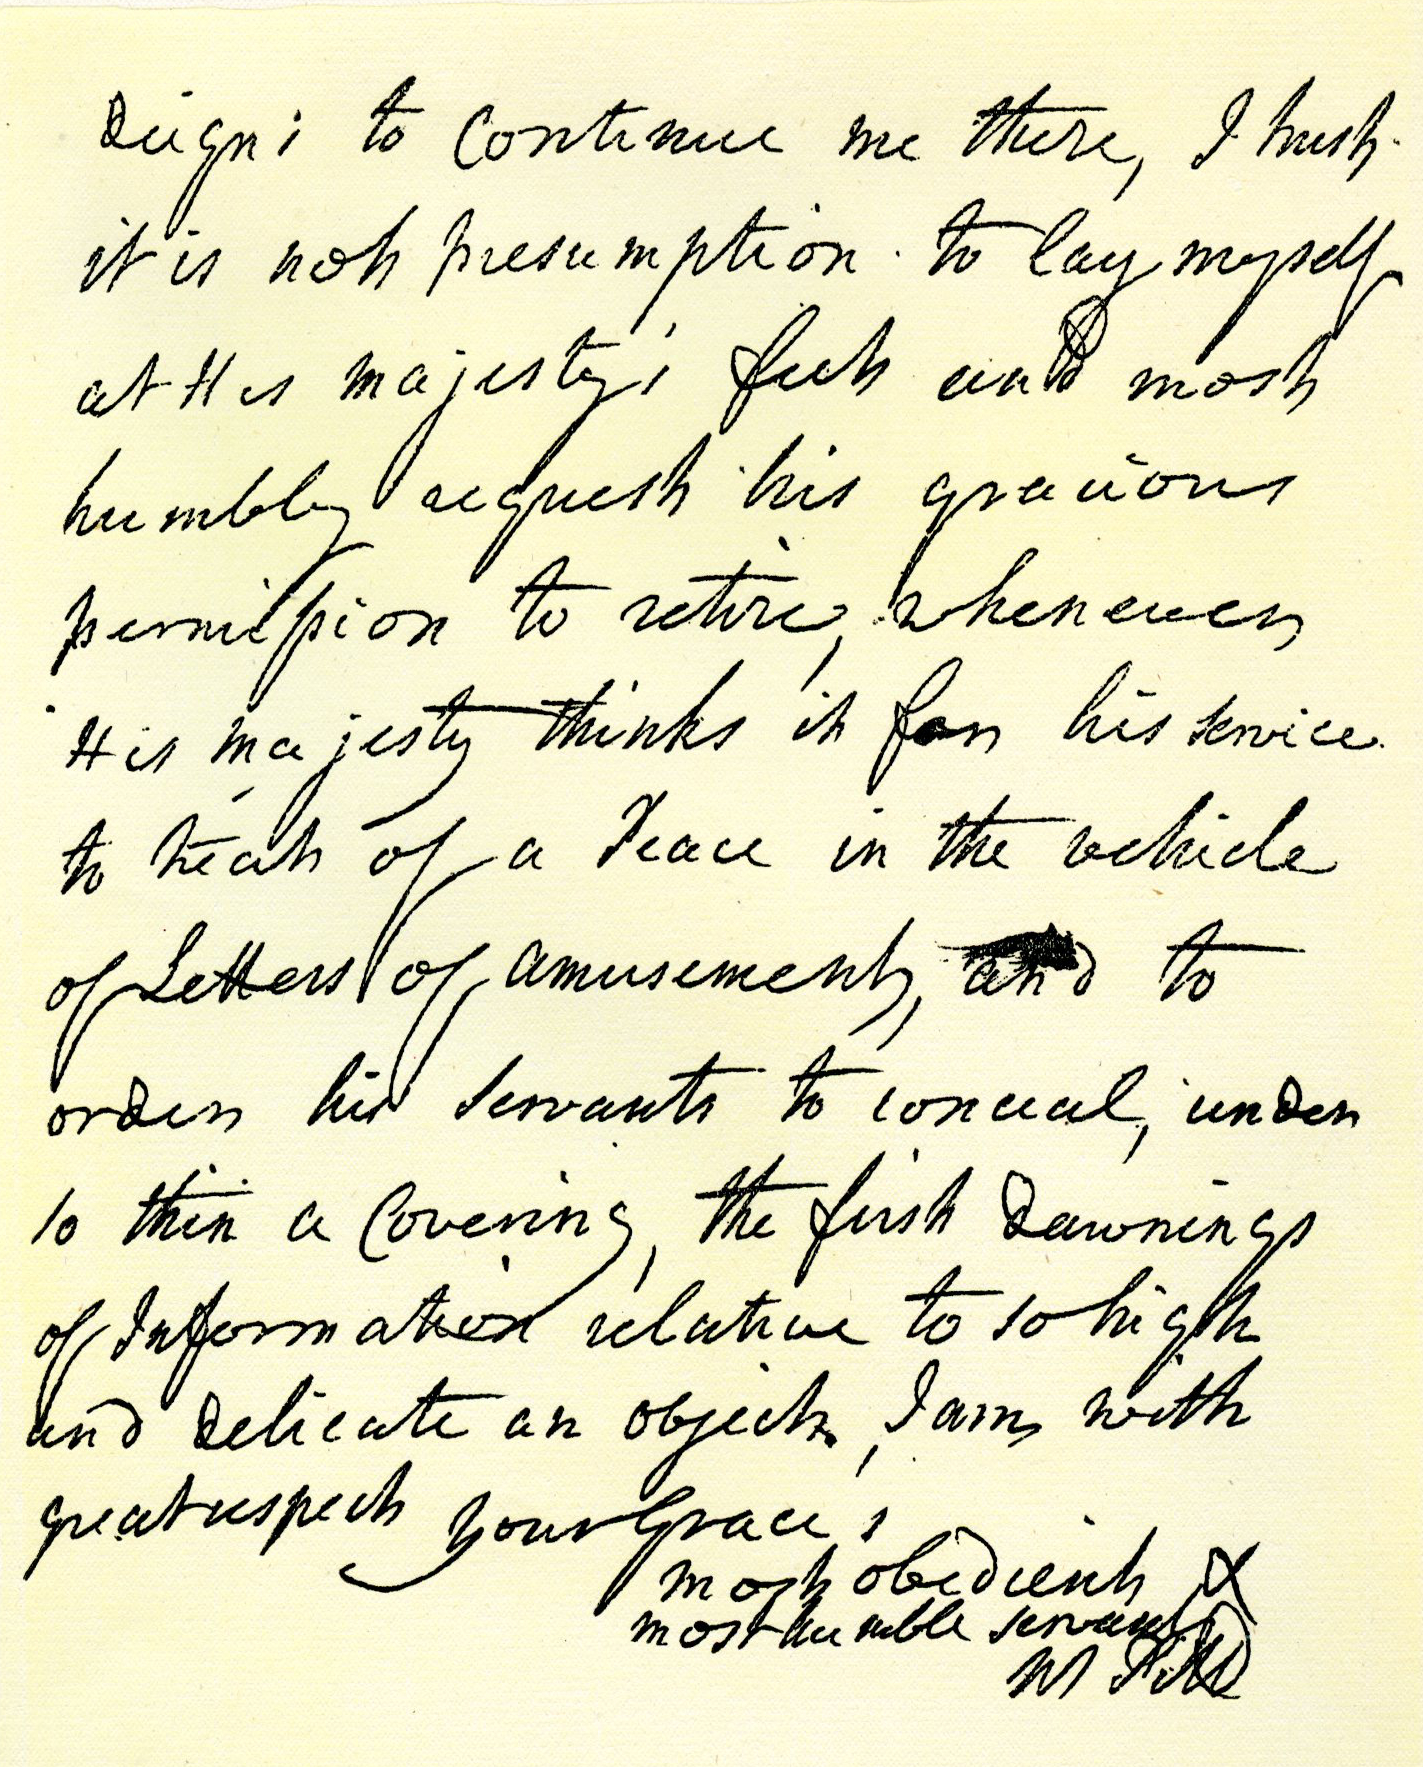 Deigns to continue me there, I trust
it is not presumption to lay myself
at His Majesty's feet and most
humbly request his gracious
permission to retire, whenever
His Majesty thinks it for his service
to treat of a Peace in the vehicle
of Letters of amusement, and to
order his servants to conceal, under
so thin a Covering, the first Dawnings
of Information relative to so high
and Delicate an object, I am with
great respect Your Grace's
most obedient &
most humble servant
W Pitt